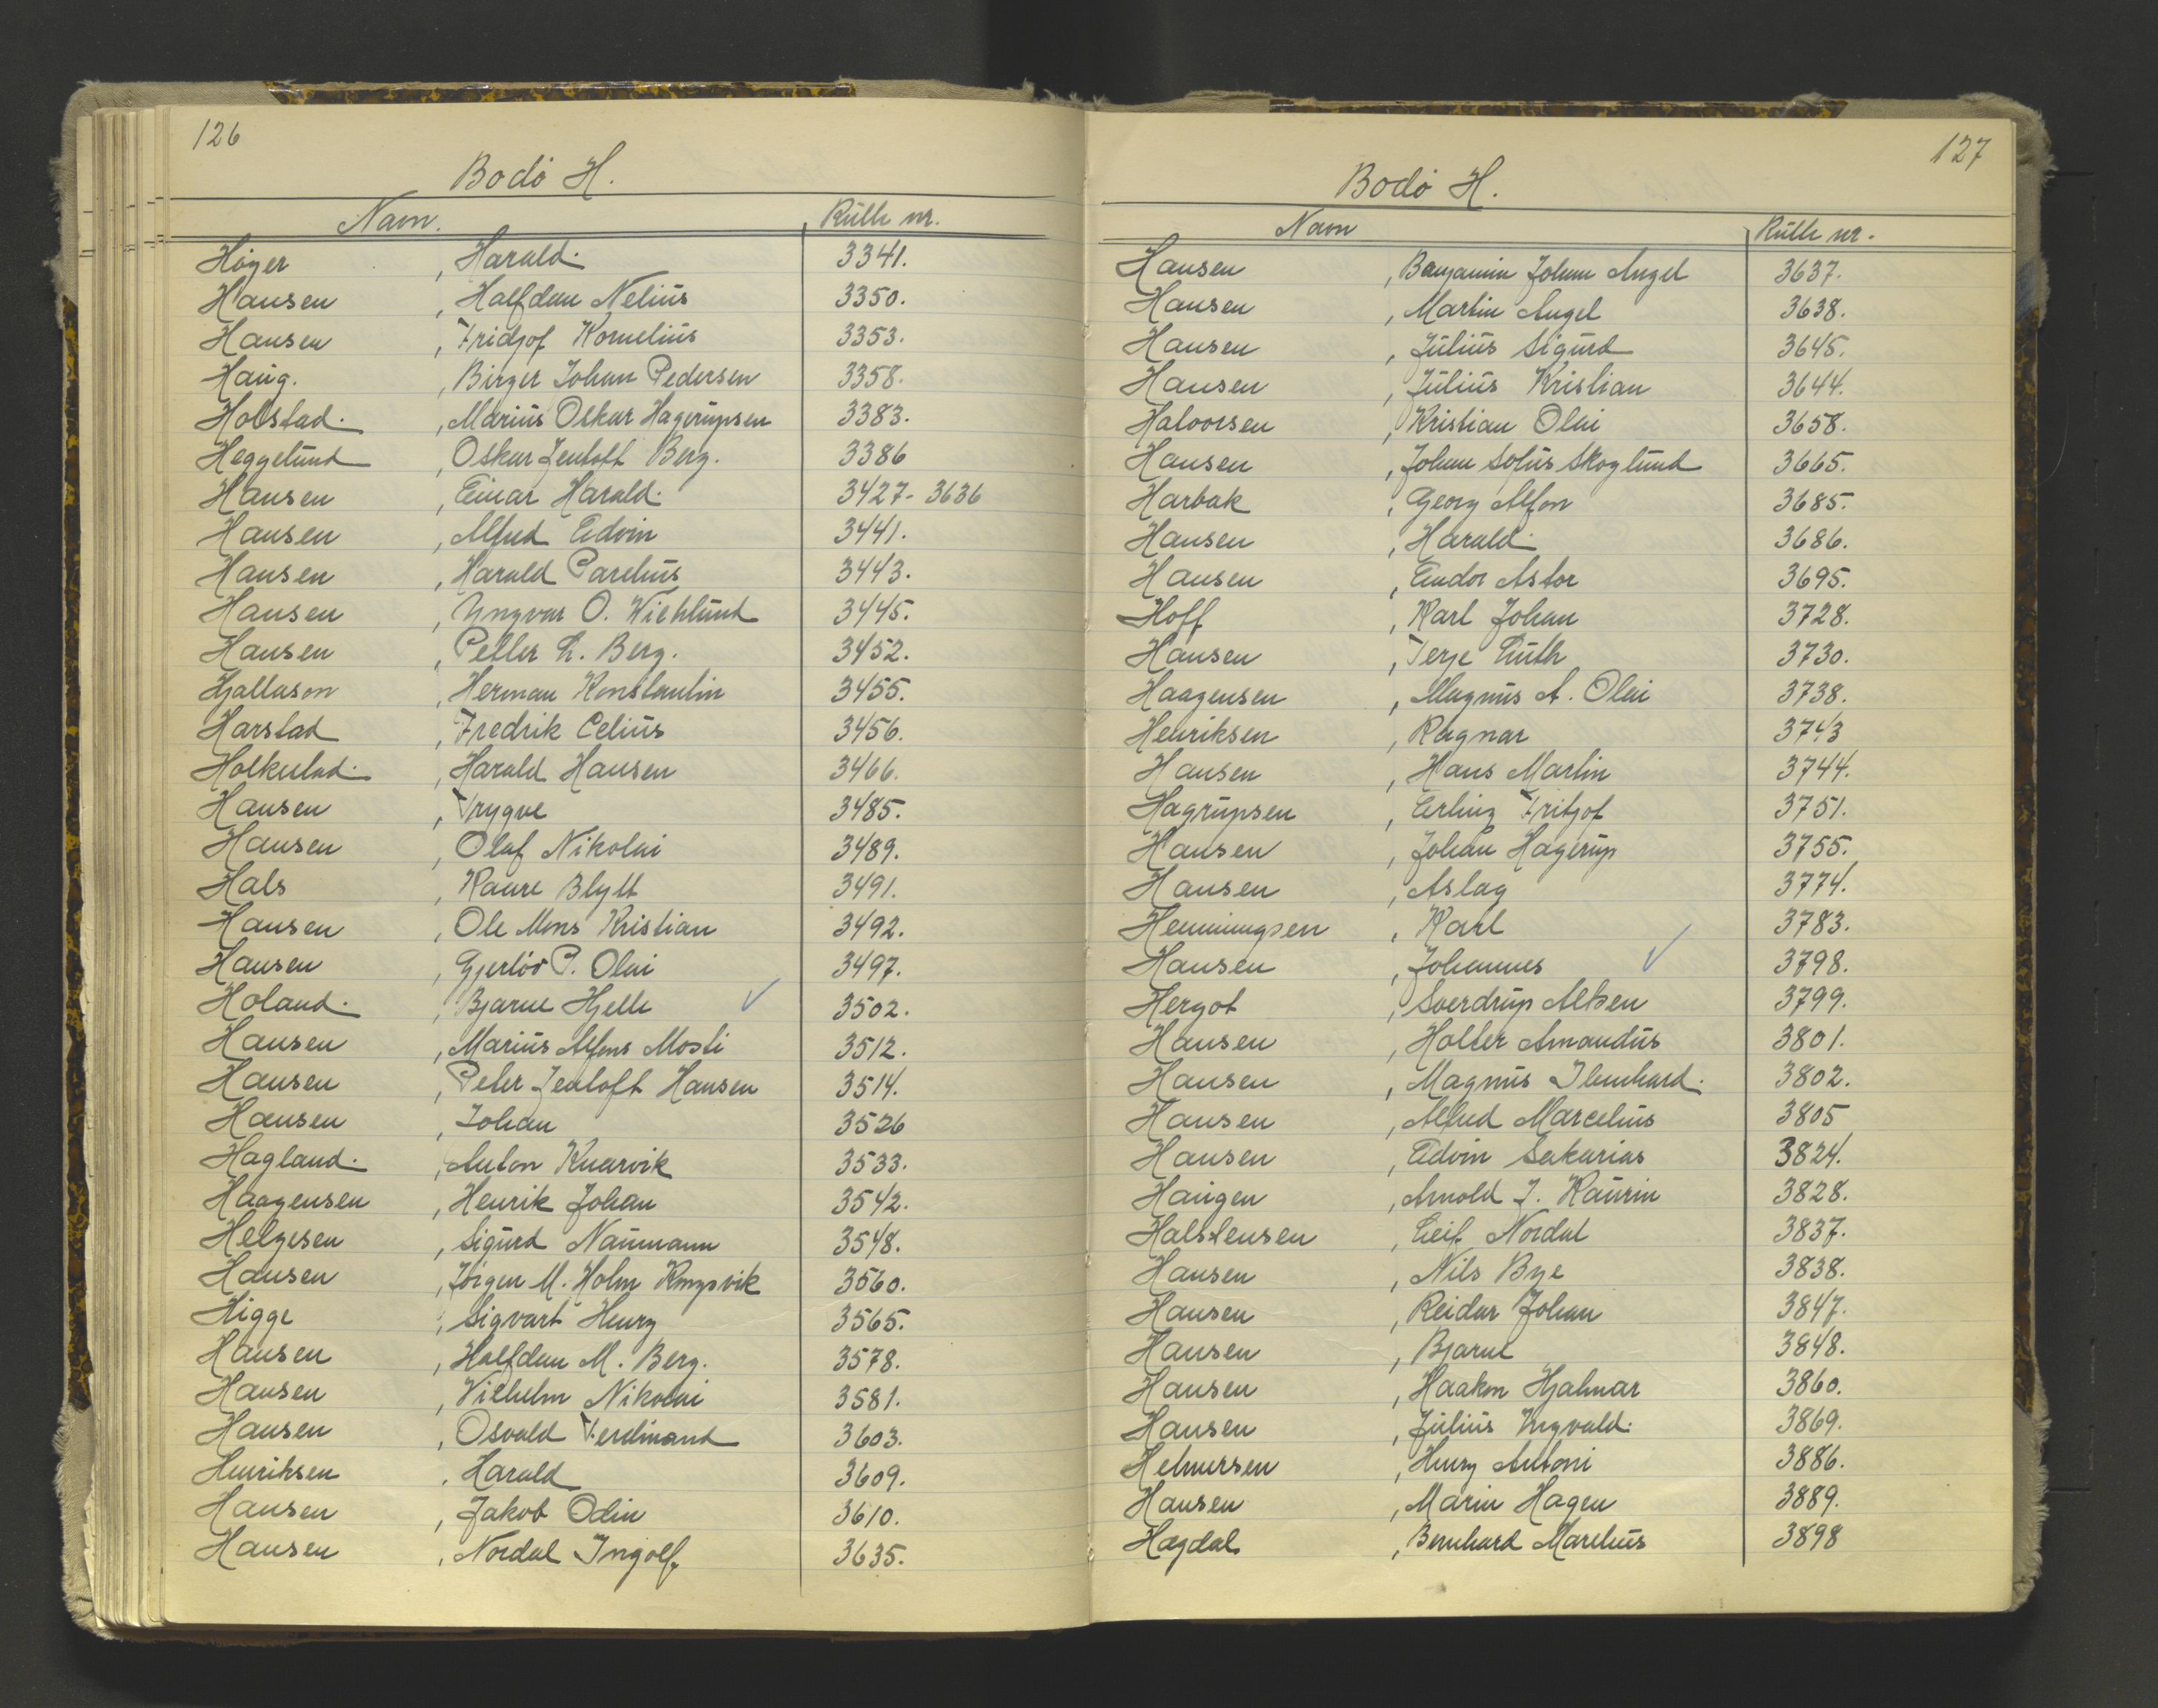 126
Bodö H.
Navn. Rulle nr.
Höyer, Harald. 3341.
Hansen, Halfdan Nelius 3350.
Hansen, Fridjof Kornelius 3353.
Haug., Birger Johan Pedersen 3358.
Holstad., Marius Oskar Hagerupsen 3383.
Heggelund, Oskar Jentoft Berg. 3386
Hansen, Einar Harald. 3427-3636
Hansen, Alfred Edvin 3441.
Hansen, Harald Parelius 3443.
Hansen, Yngvar O. 3445.
Hansen, Petter L. Berg. 3452.
Herman Konstantin 3455.
Harstad, Fredrik Celius 3456.
Harald Hansen 3466.
Hansen, Trygve 3485.
Hansen, Olaf Nikolai 3489.
Hals, Kaare Blytt 3491.
Hansen, Ole Mons Kristian 3492.
Hansen, Gjerlöv P. Olai 3497.
Holand., Bjarne Hjelle ✓ 3502.
Hansen, Marius Alfons Mosti 3512.
Hansen, Peter Jentoft Hansen 3514.
Hansen, Johan 3526
Hagland., Anton Knarvik 3533.
Haagensen, Henrik Johan 3542.
Helgesen, Sigurd Naumann 3548.
Hansen, Jörgen M. Holm 3560.
Higge, Sigvart Henry 3565.
Hansen, Halfdan M. Berg. 3578.
Hansen, Vilhelm Nikolai 3581.
Hansen, Osvald Ferdinand 3603.
Henriksen, Harald 3609.
Hansen, Jakob Odin 3610.
Hansen, Nordal Ingolf 3635.
127
Bodö H.
Navn Rulle nr.
Hansen, Benjamin Johan Angel 3637.
Hansen, Martin Angel 3638.
Hansen, Julius Sigurd 3645.
Hansen, Julius Kristian 3644.
Halvorsen, Kristian Olai 3658.
Hansen, Johan Sofus Skoglund 3665.
Harbak, Georg Alfon 3685.
Hansen, Harald. 3686.
Hansen, Astor 3695.
Hoff, Karl Johan 3728.
Hansen, Terje Luth 3730.
Haagensen, Magnus A. Olai 3738.
Henriksen, Ragnar 3743
Hansen, Hans Martin 3744.
Hagrupsen, Erling Fritjof 3751.
Hansen, Johan Hagerup 3755.
Hansen, Aslag 3774.
Henningsen, Karl 3783.
Hansen, Johannes ✓ 3798.
Hergot, Sverdrup 3799.
Hansen, Holter Amandus 3801.
Hansen, Magnus 3802.
Hansen, Alfred Marcelius 3805
Hansen, Edvin Sakarias 3824.
Haugen, Arnold J. Kaurin 3828.
Halstensen, Leif Nordal 3837.
Hansen, Nils Bye 3838.
Hansen, Reidar Johan 3847.
Hansen, Bjarne 3848.
Hansen, Haakon Hjalmar 3860.
Hansen, Julius Yngvald. 3869.
Helmersen, Henry Antoni 3886.
Hansen, Marin Hagen 3889.
Hagdal, Bernhard Marelius 3898